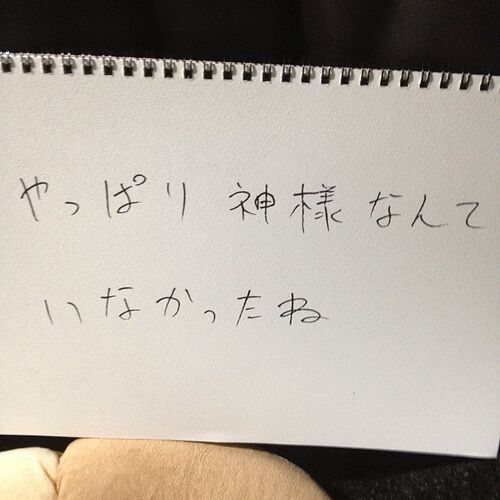 やっぱり 神様なんて
いなかったね